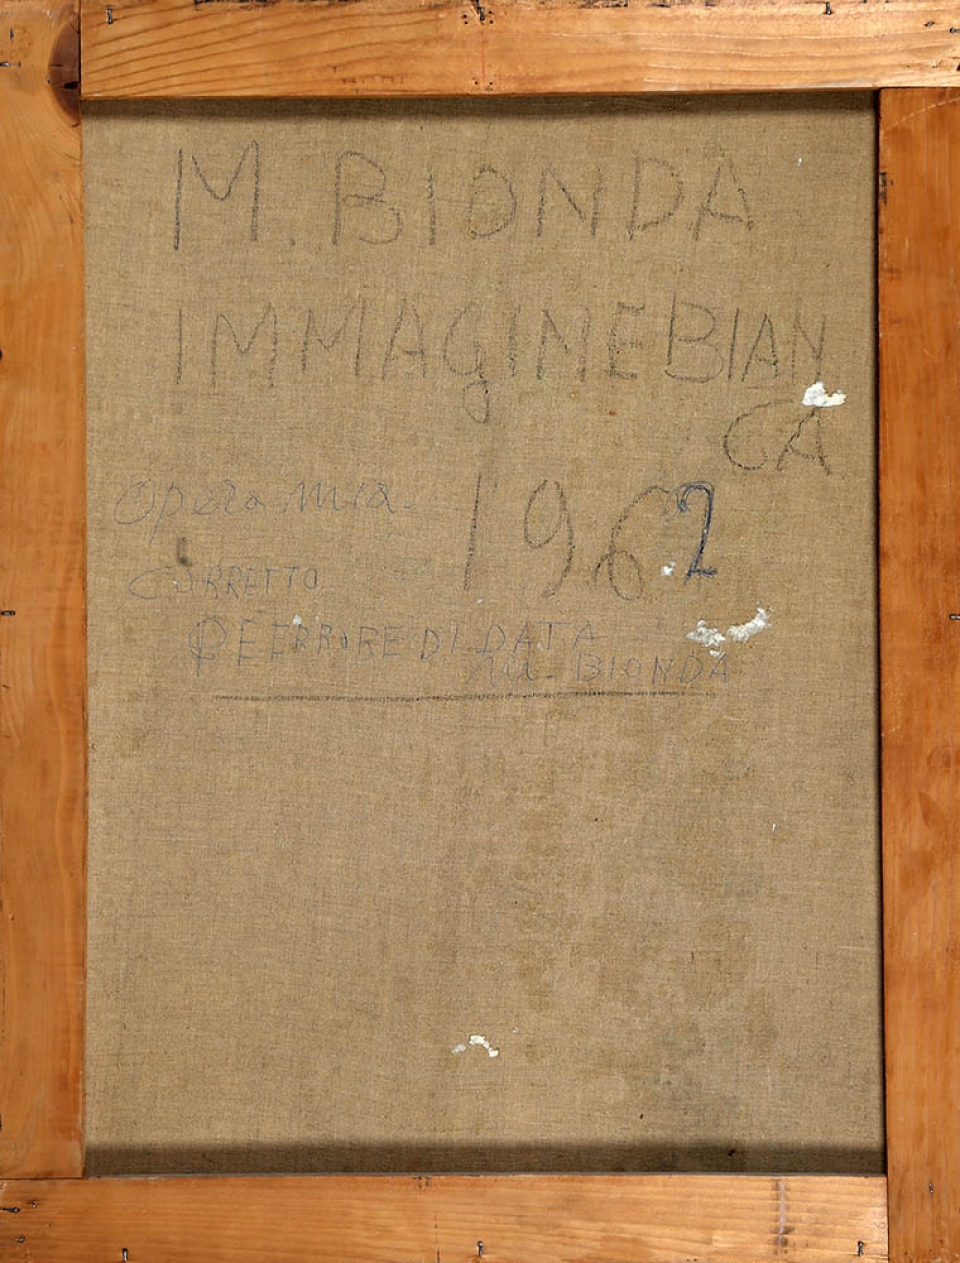 M. BIONDA
IMMAGINE BIAN
CA
Opera mia. 1962
CORRETTO
PE ERRORE DI DATA
M. BIONDA